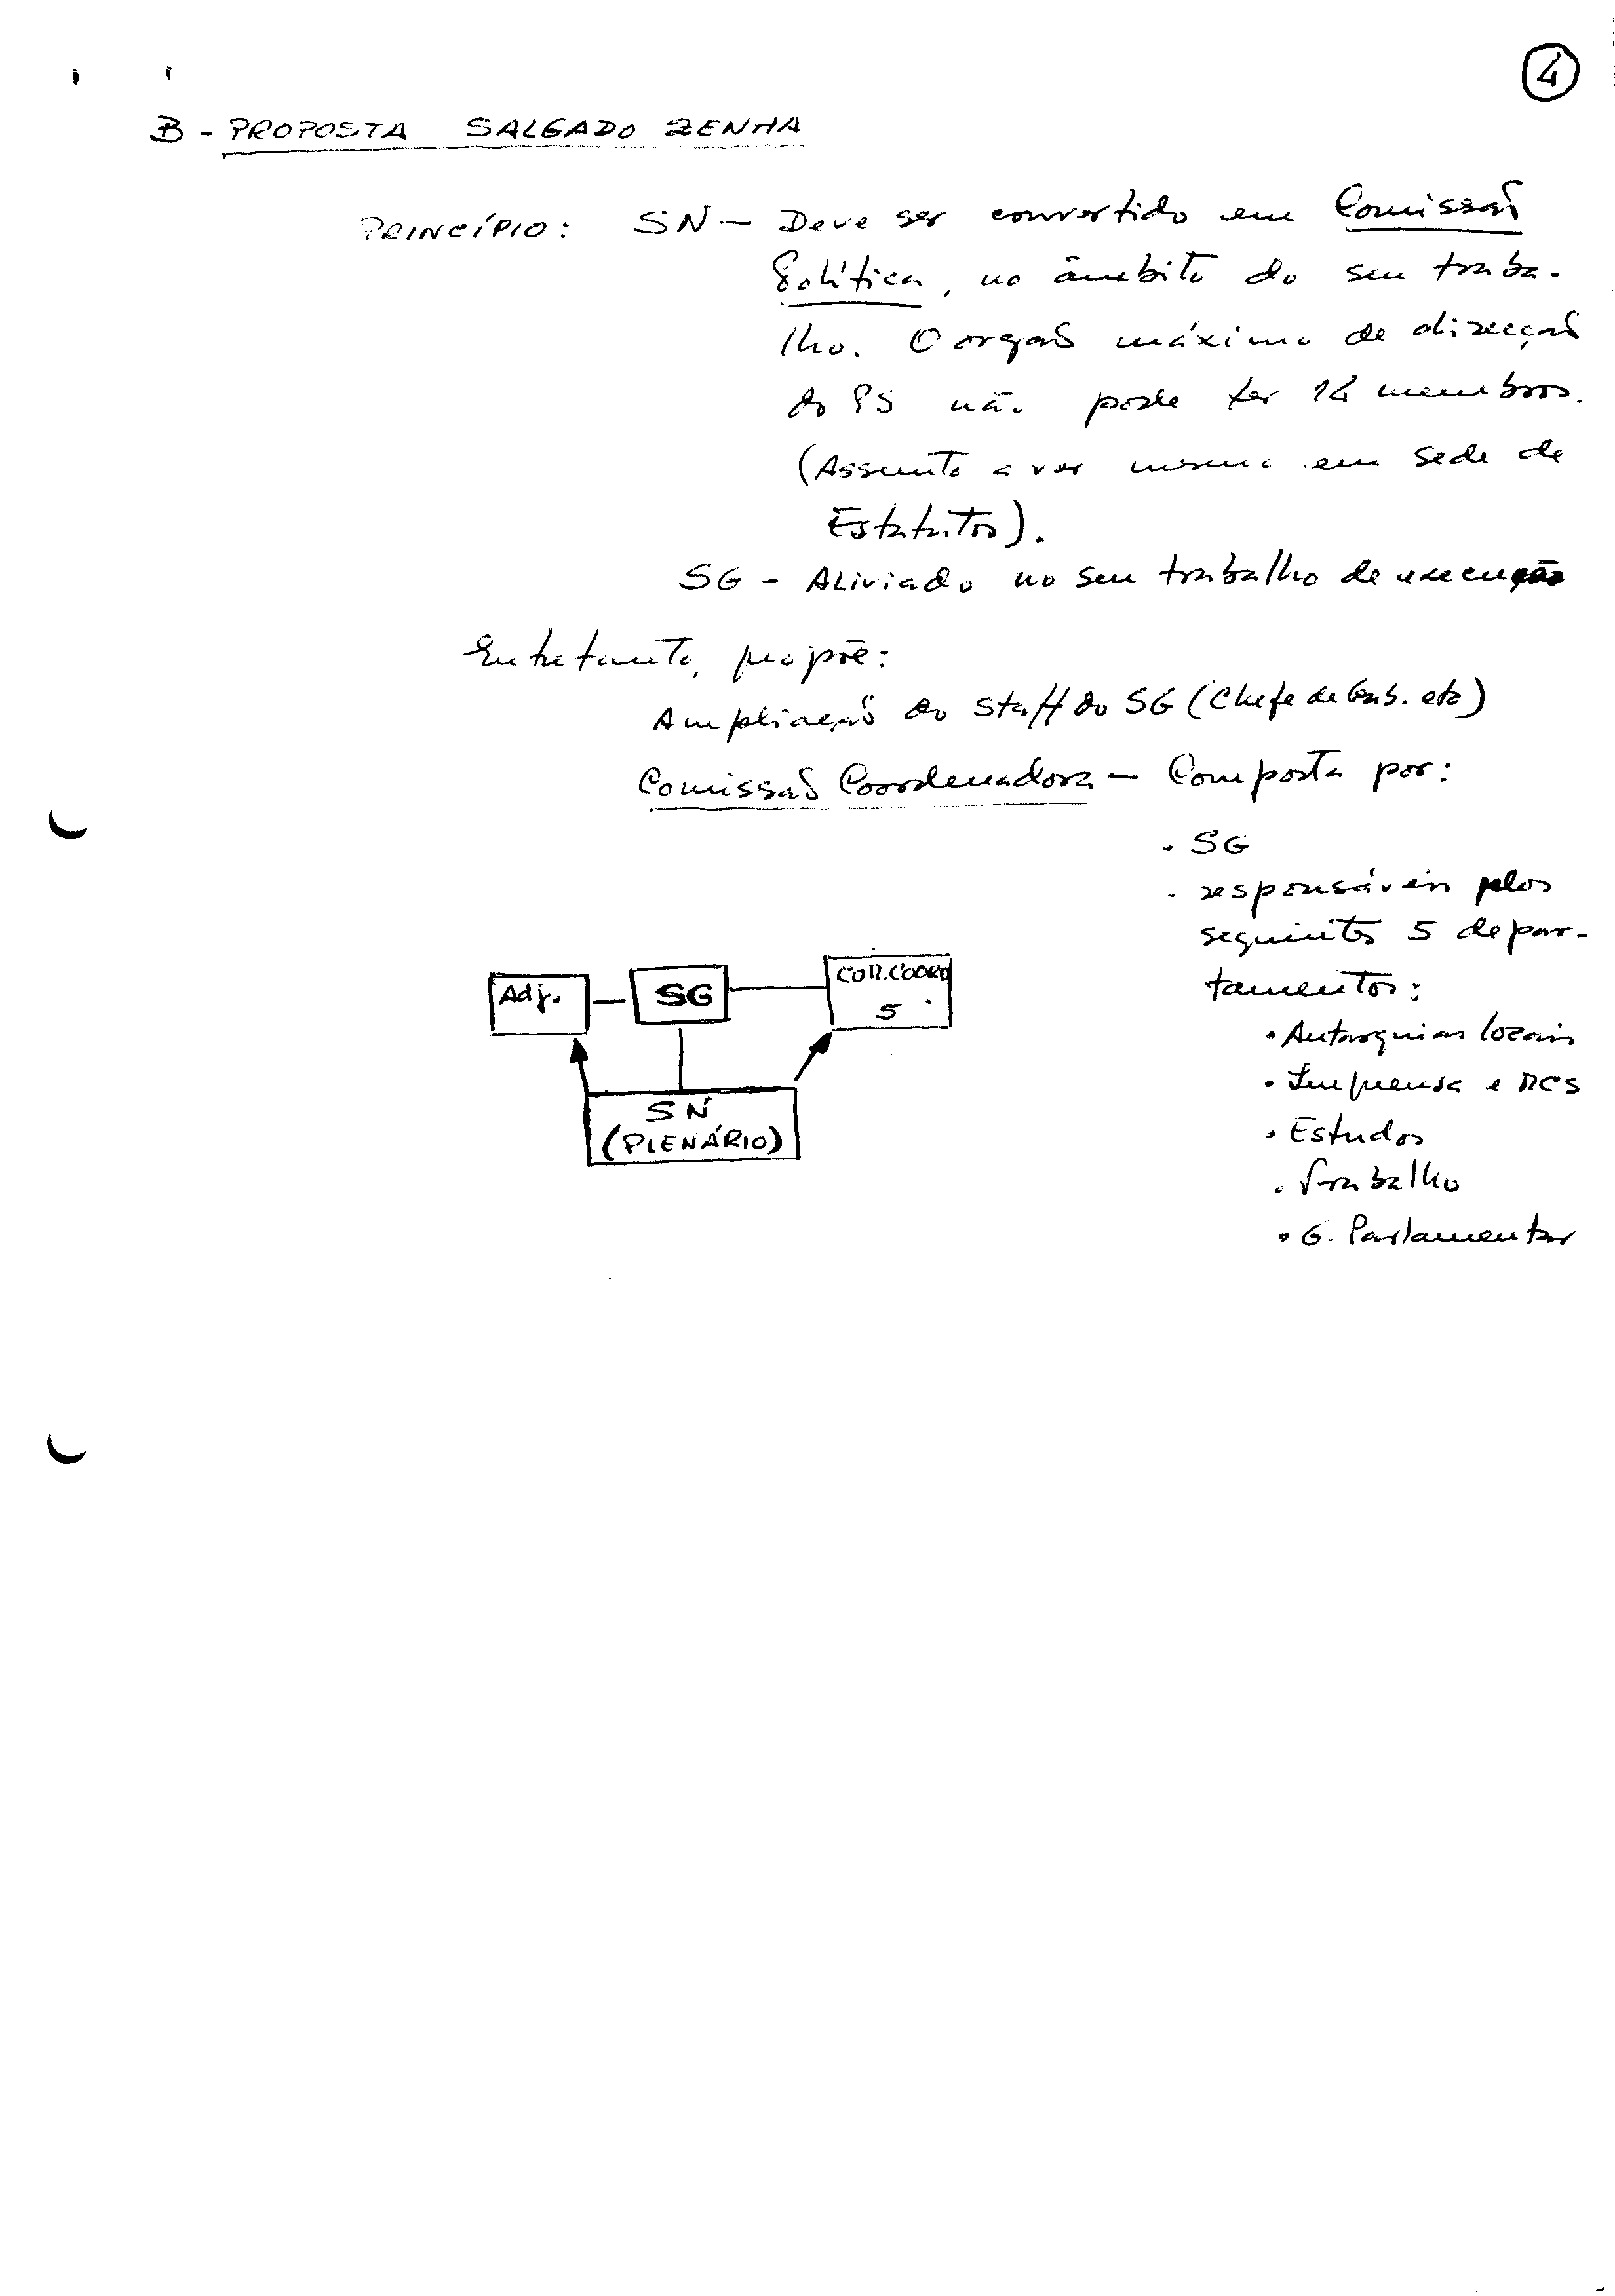 4
B - PROPOSTA SALGADO ZENHA
PRINCÍPIO: SN - Deve ser convertido em Comissão
Política, no âmbito do seu traba-
lho. O orgão máximo de direcção
do PS não pode ter 14 membros.
(Assunto a ver mesmo em sede de
Estatutos).
SG - Aliviado no seu trabalho de execução
Entretanto, propõe:
Ampliação do Staff do SG (Chefe de Gab. etc)
Comissão Coordenadora - Composta por:
. SG
. responsáveis pelos
seguintes 5 depar-
tamentos:
. Autarquias locais
. Imprensa e MCS
. Estudos
. Trabalho
. G. Parlamentar
Adj.
SG
COM.COORD
5
SN
(PLENÁRIO)